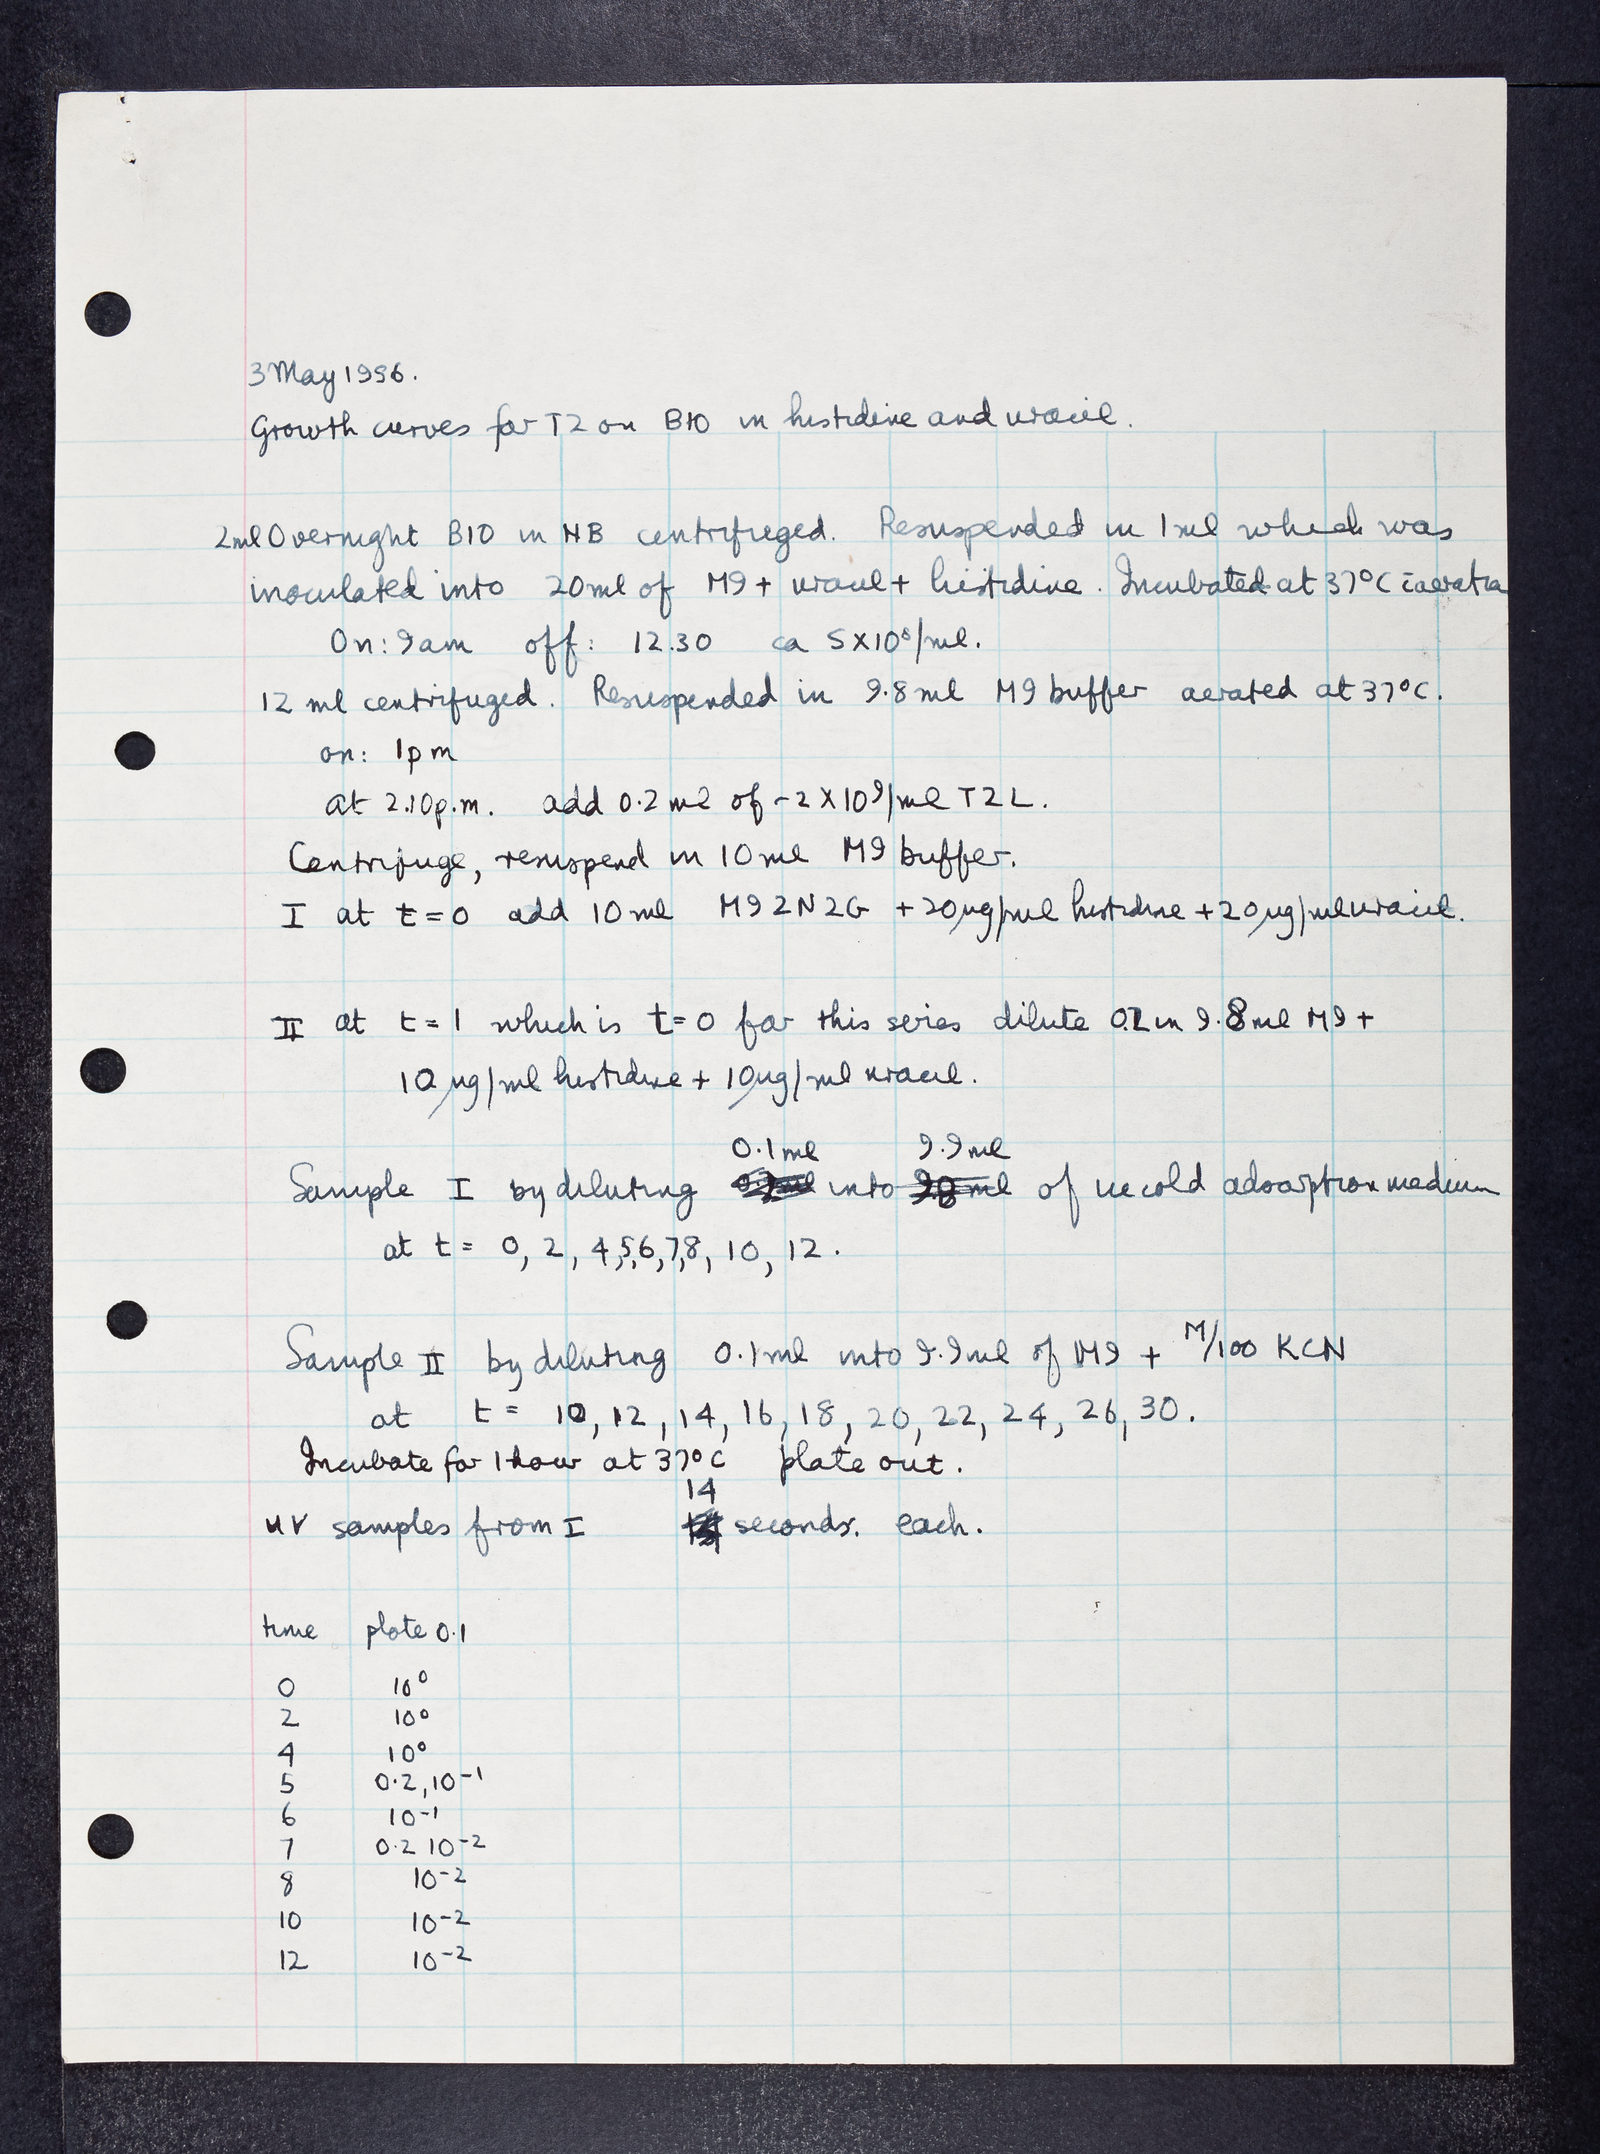 3 May 1956.
Growth curves for T2 on B10 in histidine and uracil.
2ml Overnight B10 in NB centrifuged. Resuspended in 1ml which was
inoculated into 20ml of M9 + uracil + histidine. Incubated at 37°C c̄ aeration
On: 9am off: 12.30 ca 5X10⁸/ml.
12 ml centrifuged. Resuspended in 9.8ml M9 buffer aerated at 37°C.
on: 1pm
at 2.10p.m. add 0.2ml of ~2X10⁹/ml T2L.
Centrifuge, resuspend in 10ml M9 buffer.
I at t=0 add 10ml M9 2N2G +20µg/ml histidine +20µg/ml uracil.
II at t=1 which is t=0 for this series dilute 0.2 in 9.8ml M9 +
10µg/ml histidine + 10µg/ml uracil.
0.1ml 9.9ml
Sample I by diluting 0.2ml into 9.8ml of ice cold adsorption medium
at t= 0, 2, 4,5,6,7,8, 10, 12.
Sample II by diluting 0.1ml into 9.9ml of M9 + M/100 KCN
at t= 10, 12, 14, 16, 18, 20, 22, 24, 26, 30.
Incubate for 1 hour at 37°C plate out.
14
UV samples from I seconds. each.
time plate 0.1
0 10⁰
2 10⁰
4 10⁰
5 0.2, 10⁻¹
6 10⁻¹
7 0.2 10⁻²
8 10⁻²
10 10⁻²
12 10⁻²